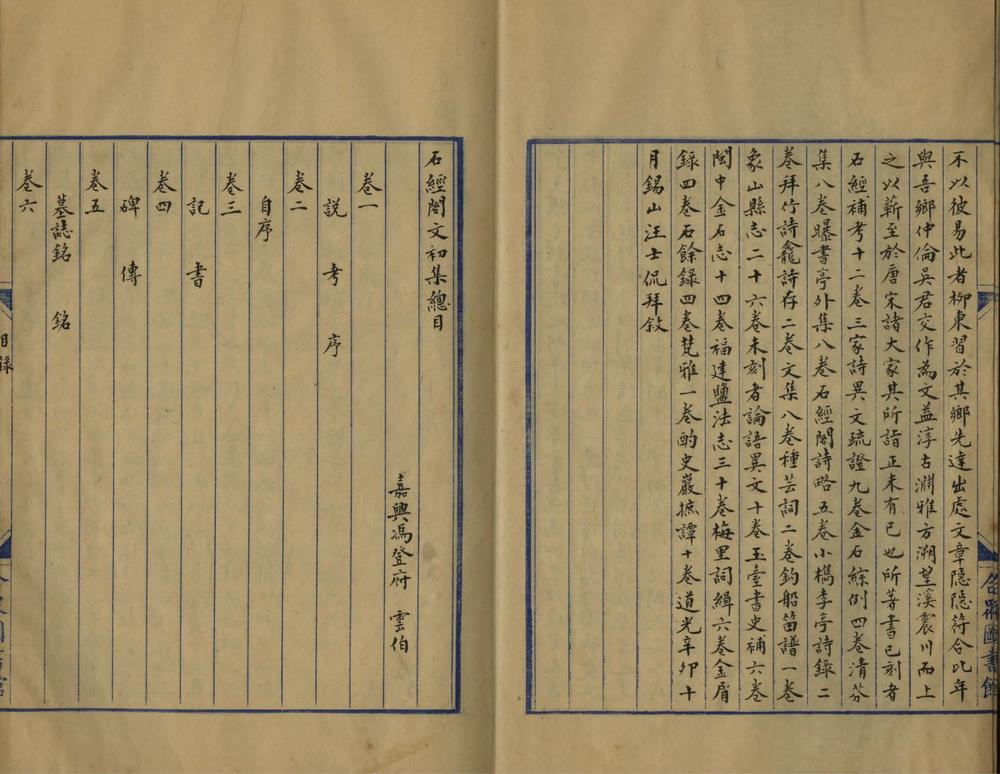 不以彼易此者柳東習於其鄉先達出處文章隱隱符合比年
與吾鄉仲倫吳君交作為文益淳古淵雅方溯望溪震川而上
之以蘄至於唐宋諸大家其所詣正未有已也所著書已刻者
石經補考十二卷三家詩異文疏證九卷金石綜例四卷清芬
集八卷曝書亭外集八卷石經閣詩略五卷小檇李亭詩錄二
卷拜竹詩龕詩存二卷文集八卷種芸詞二卷釣船笛譜一卷
象山縣志二十六卷未刻者論語異文十卷玉臺書史補六卷
閩中金石志十四卷福建鹽法志三十卷梅里詞緝六卷金屑
錄四卷石餘錄四卷梵雅一卷酌史巖摭譚十卷道光辛卯十
月錫山汪士侃拜敍
石經閣文初集總目
嘉興馮登府 雲伯
卷一
說 考 序
卷二
自序
卷三
記 書
卷四
碑 傳
卷五
墓誌銘 銘
卷六
目錄
圖書館